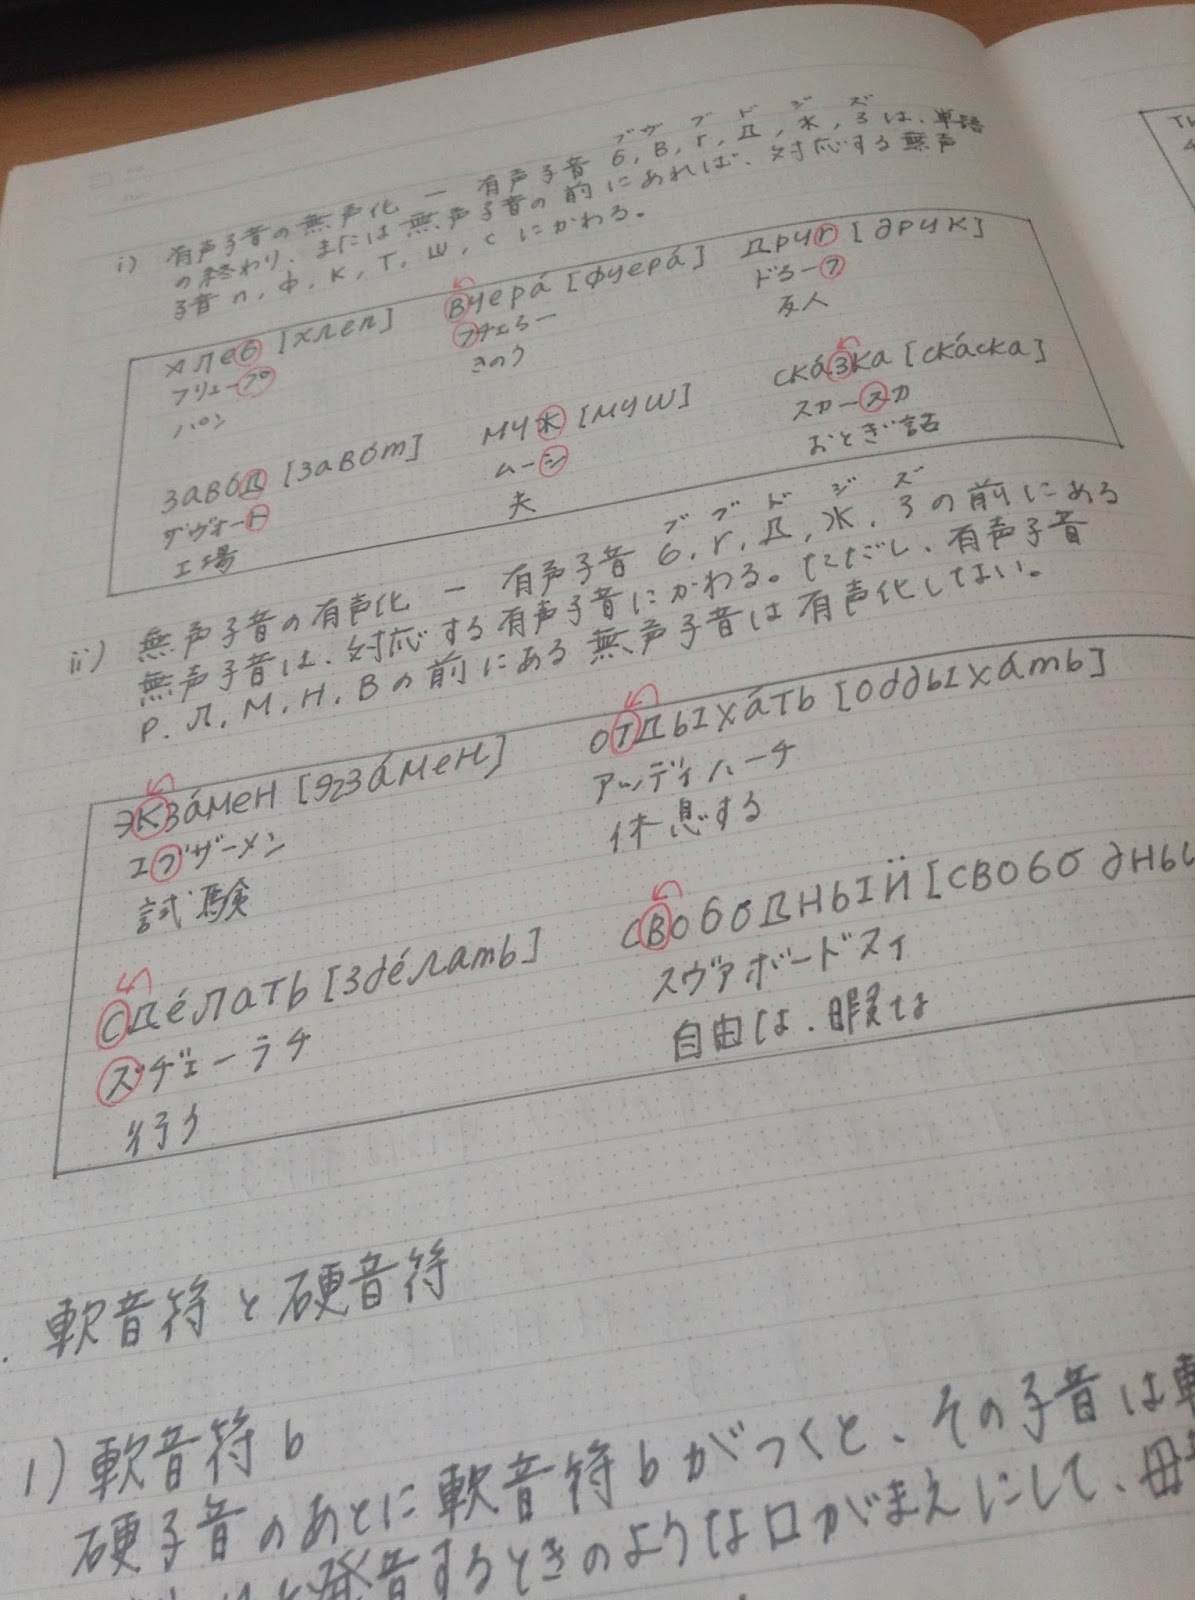 ブ ヴ グ ド ジ ズ
i) 有声子音の無声化 ー 有声子音 б, в, г, д, ж, з は、単語
の終わり、または無声子音の前にあれば、対応する無声
子音 п, ф, к, т, ш, с にかわる。
хлеб [хлеп] вчера́ [фчера́] друг [друк]
フリェープ フチェラー ドルーク
パン きのう 友人
заво́д [заво́т] муж [муш] ска́зка [ска́ска]
ザヴォート ムーシ スカースカ
工場 夫 おとぎ話
ブ グ ド ジ ズ
ii) 無声子音の有声化 ー 有声子音 б, г, д, ж, з の前にある
無声子音は、対応する有声子音にかわる。ただし、有声子音
р, л, м, н, в の前にある無声子音は有声化しない。
экза́мен [эгза́мен] отдыха́ть [оддыха́ть]
エグザーメン アッディハーチ
試験 休息する
сде́лать [зде́лать] свобо́дный [свобо́дны
ズヂェーラチ スヴァボードヌイ
行う 自由な、暇な
. 軟音符と硬音符
1) 軟音符 ь
硬子音のあとに軟音符 ь がつくと、その子音は軟
と発音するときのような口がまえにして、母音